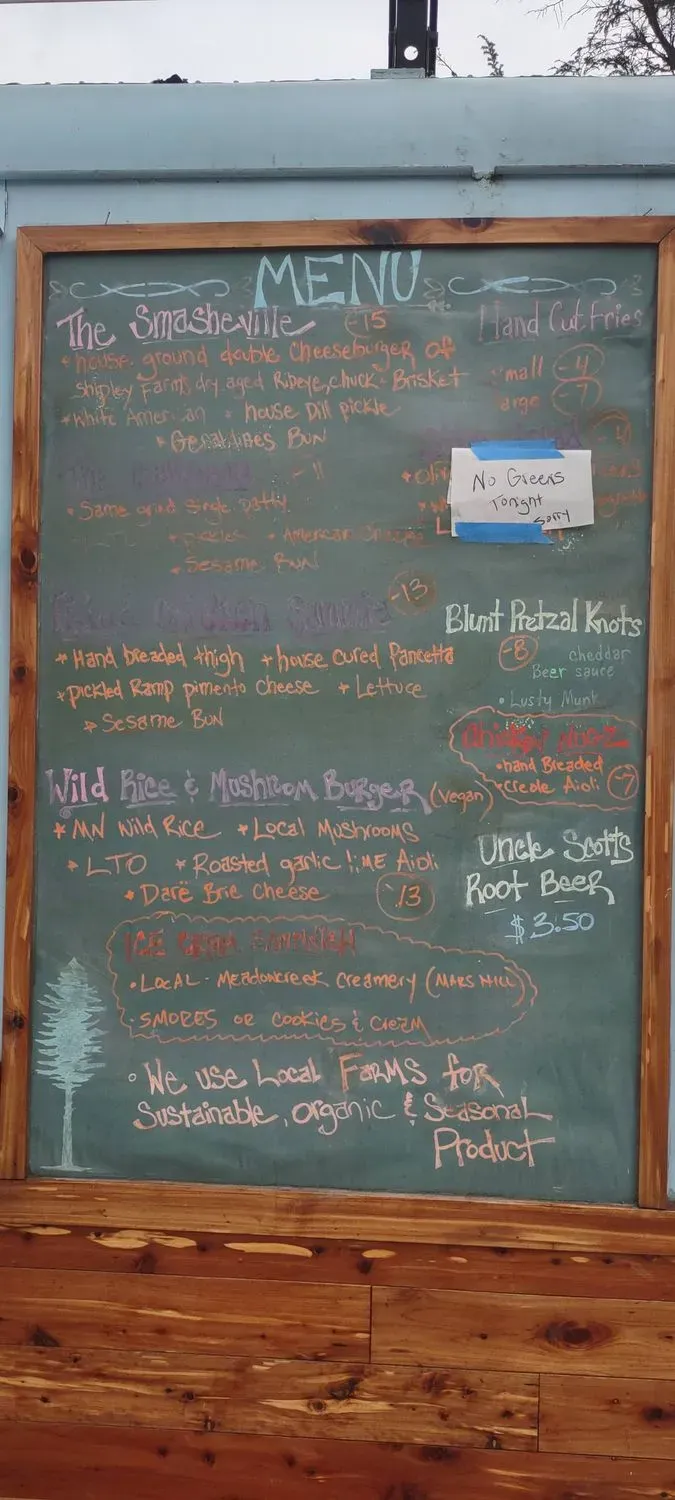 MENU
The Smasheville -15
*house ground double Cheeseburger of
Shipley Farms dry aged Ribeye, chuck & Brisket
*White American * house Dill pickle
* Geraldines Bun
- 11
* Same grind single patty
* pickles * American Cheese
* Sesame BUN
-13
* Hand breaded thigh * house cured Pancetta
* pickled Ramp pimento cheese * Lettuce
* Sesame BUN
Wild Rice & Mushroom Burger (vegan)
* MN Wild Rice * Local Mushrooms
* LTO * Roasted garlic LIME Aioli
* Darë Brie Cheese 13
ICE CREAM
• LOCAL - Meadowcreek Creamery (MARS HILL)
• SMORES or Cookies & Cream
• We use Local FARMS for
Sustainable, organic & Seasonal
Product
Hand Cut Fries
Small -4
arge -7
No Greens
Tonight
Sorry
Blunt Pretzal Knots
-8 cheddar
Beer sauce
• Lusty Monk
Chicken
• hand Breaded
• creole Aioli -7
Uncle Scotts
Root Beer
$3.50